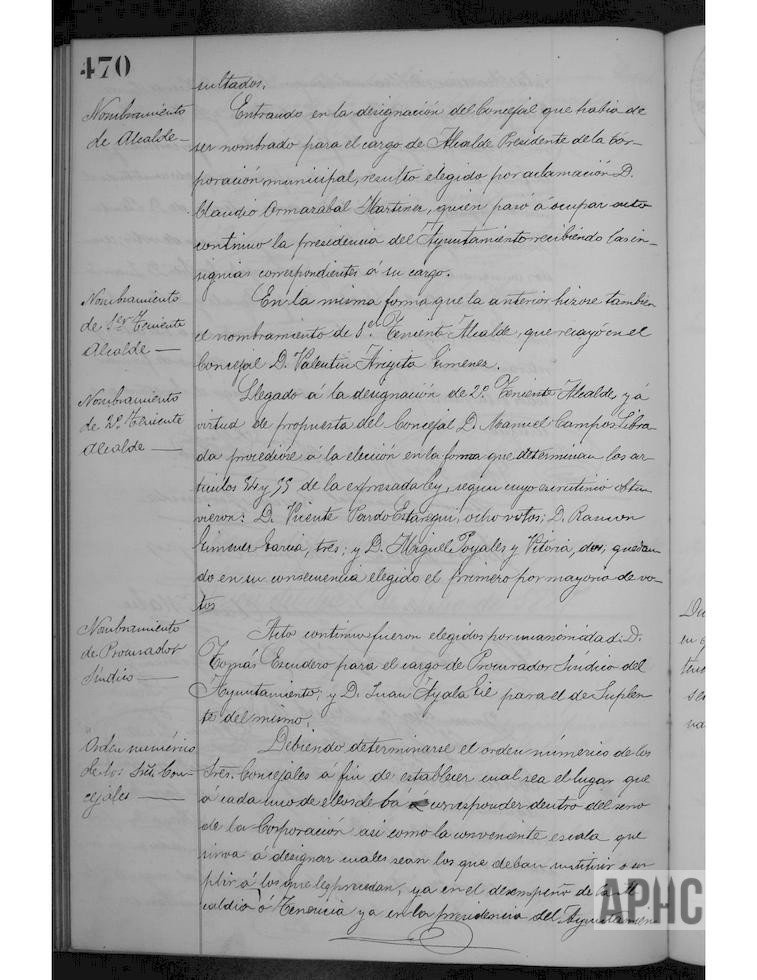 470
sultados.
Nombramiento
de Alcalde—
Entrando en la designación del Concejal que habia de
ser nombrado para el cargo de Alcalde Presidente de la Cor-
poración municipal, resultó elegido por aclamación D.
Claudio Ormazabal Martinez, quien pasó á ocupar auto
continuo la presidencia del Ayuntamiento recibiendo las in-
signias correspondientes á su cargo.
Nombramiento
de 1er Teniente
Alcalde—
En la misma forma que la anterior hizose tambien
el nombramiento de 1er Teniente Alcalde, que recayó en el
Concejal D. Valentin Arigita Gimenez.
Nombramiento
de 2º Teniente
Alcalde—
Llegado á la designación de 2º Teniente Alcalde, y á
virtud de propuesta del Concejal D. Manuel Campos Libra-
da procedióse á la elección en la forma que determinan los ar-
ticulos 54 y 55 de la expresada ley, segun cuyo escrutinio obtu-
vieron: D. Vicente Pardo ocho votos; D. Ramon
Gimenez Garcia, tres; y D. Miguel Poyales y Vitoria, dos; quedan-
do en su consecuencia elegido el primero por mayoria de vo-
tos
Nombramiento
de Procurador
Síndico—
Acto continuo fueron elegidos por unanimidad: D.
Tomás Escudero para el cargo de Procurador Síndico del
Ayuntamiento; y D. Juan Ayala Gil para el de Suplen-
te del mismo.
Orden numérico
de los Sres. Con-
cejales—
Debiendo determinarse el orden númerico de los
Sres. Concejales á fin de establecer cual sea el lugar que
á cada uno de ellos deba á corresponder dentro del seno
de la Corporación asi como la conveniente escala que
sirva á designar cuales sean los que deban sustituir o su-
plir á los que les precedan, ya en el desempeño de la Al-
caldia ó Tenencia ya en la presidencia del Ayuntamien-
en
APHC